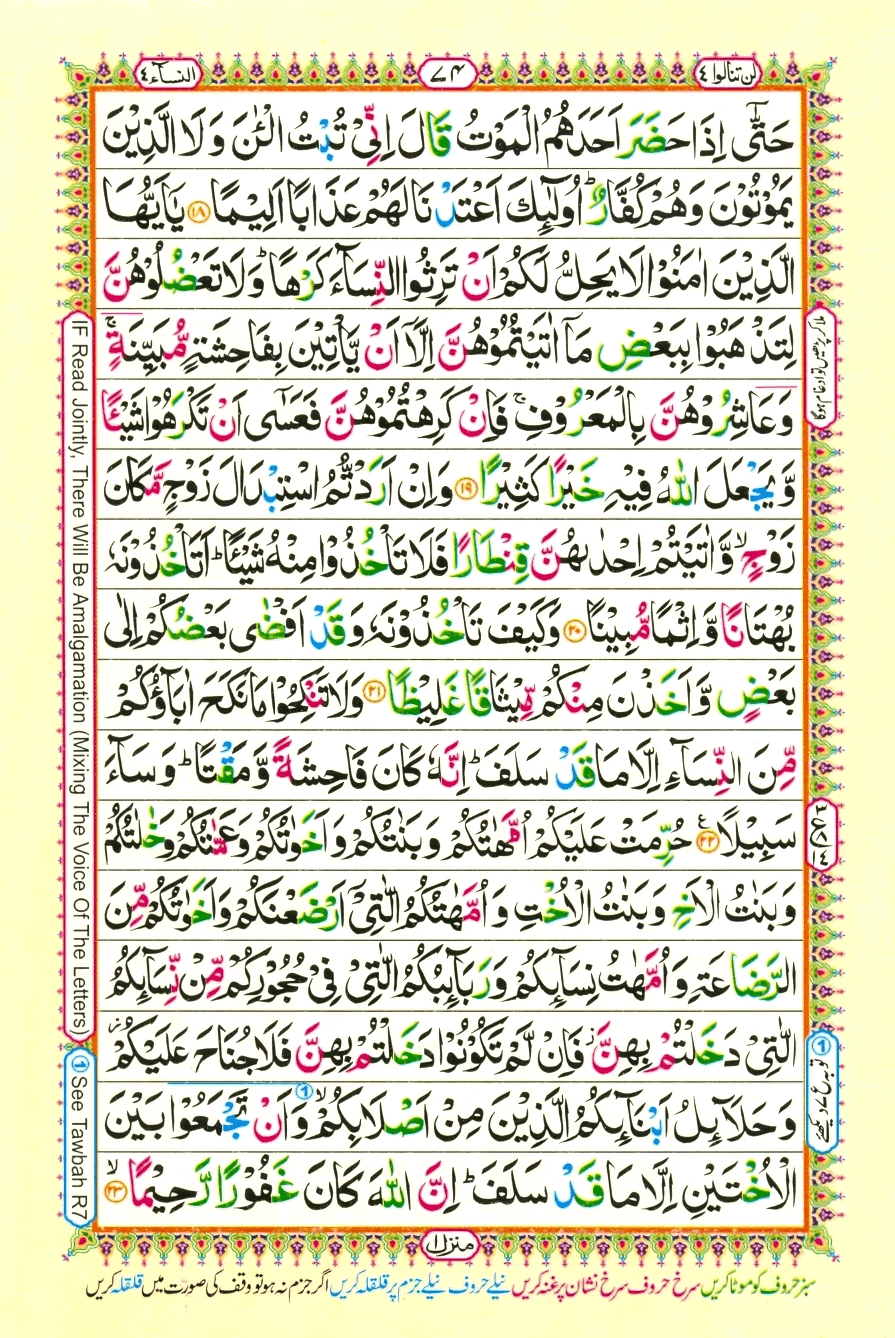 لن تنالوا ٤
٧٤
النسآء ٤
حَتّٰۤی اِذَا حَضَرَ اَحَدَهُمُ الْمَوْتُ قَالَ اِنِّیْ تُبْتُ الْـٰٔنَ وَ لَا الَّذِیْنَ
یَمُوْتُوْنَ وَ هُمْ كُفَّارٌ ؕ اُولٰٓىِٕكَ اَعْتَدْنَا لَهُمْ عَذَابًا اَلِیْمًا ﴿۱۸﴾ یٰۤاَیُّهَا
الَّذِیْنَ اٰمَنُوْا لَا یَحِلُّ لَكُمْ اَنْ تَرِثُوا النِّسَآءَ كَرْهًا ؕ وَ لَا تَعْضُلُوْهُنَّ
لِتَذْهَبُوْا بِبَعْضِ مَاۤ اٰتَیْتُمُوْهُنَّ اِلَّاۤ اَنْ یَّاْتِیْنَ بِفَاحِشَةٍ مُّبَیِّنَةٍ ۚ
وَ عَاشِرُوْهُنَّ بِالْمَعْرُوْفِ ۚ فَاِنْ كَرِهْتُمُوْهُنَّ فَعَسٰۤی اَنْ تَكْرَهُوْا شَیْـًٔا
وَّ یَجْعَلَ اللّٰهُ فِیْهِ خَیْرًا كَثِیْرًا ﴿۱۹﴾ وَ اِنْ اَرَدْتُّمُ اسْتِبْدَالَ زَوْجٍ مَّكَانَ
زَوْجٍ ۙ وَّ اٰتَیْتُمْ اِحْدٰىهُنَّ قِنْطَارًا فَلَا تَاْخُذُوْا مِنْهُ شَیْـًٔا ؕ اَتَاْخُذُوْنَهٗ
بُهْتَانًا وَّ اِثْمًا مُّبِیْنًا ﴿۲۰﴾ وَ كَیْفَ تَاْخُذُوْنَهٗ وَ قَدْ اَفْضٰی بَعْضُكُمْ اِلٰی
بَعْضٍ وَّ اَخَذْنَ مِنْكُمْ مِّیْثَاقًا غَلِیْظًا ﴿۲۱﴾ وَ لَا تَنْكِحُوْا مَا نَكَحَ اٰبَآؤُكُمْ
مِّنَ النِّسَآءِ اِلَّا مَا قَدْ سَلَفَ ؕ اِنَّهٗ كَانَ فَاحِشَةً وَّ مَقْتًا ؕ وَ سَآءَ
سَبِیْلًا ﴿۲۲﴾ ع حُرِّمَتْ عَلَیْكُمْ اُمَّهٰتُكُمْ وَ بَنٰتُكُمْ وَ اَخَوٰتُكُمْ وَ عَمّٰتُكُمْ وَ خٰلٰتُكُمْ
وَ بَنٰتُ الْاَخِ وَ بَنٰتُ الْاُخْتِ وَ اُمَّهٰتُكُمُ الّٰتِیْۤ اَرْضَعْنَكُمْ وَ اَخَوٰتُكُمْ مِّنَ
الرَّضَاعَةِ وَ اُمَّهٰتُ نِسَآىِٕكُمْ وَ رَبَآىِٕبُكُمُ الّٰتِیْ فِیْ حُجُوْرِكُمْ مِّنْ نِّسَآىِٕكُمُ
الّٰتِیْ دَخَلْتُمْ بِهِنَّ ؗ فَاِنْ لَّمْ تَكُوْنُوْا دَخَلْتُمْ بِهِنَّ فَلَا جُنَاحَ عَلَیْكُمْ ؗ
وَ حَلَآىِٕلُ اَبْنَآىِٕكُمُ الَّذِیْنَ مِنْ اَصْلَابِكُمْ ۙ وَ اَنْ تَجْمَعُوْا بَیْنَ
الْاُخْتَیْنِ اِلَّا مَا قَدْ سَلَفَ ؕ اِنَّ اللّٰهَ كَانَ غَفُوْرًا رَّحِیْمًا ﴿۲۳﴾ ۙ
ملا کر پڑھیں تو ادغام ہوگا
IF Read Jointly, There Will Be Amalgamation (Mixing The Voice Of The Letters)
See Tawbah R7
منزل ۱
سبز حروف کو موٹا کریں سرخ حروف سرخ نشان پر غنہ کریں نیلے حروف نیلے جزم پر قلقلہ کریں اگر جزم نہ ہو تو وقف کی صورت میں قلقلہ کریں